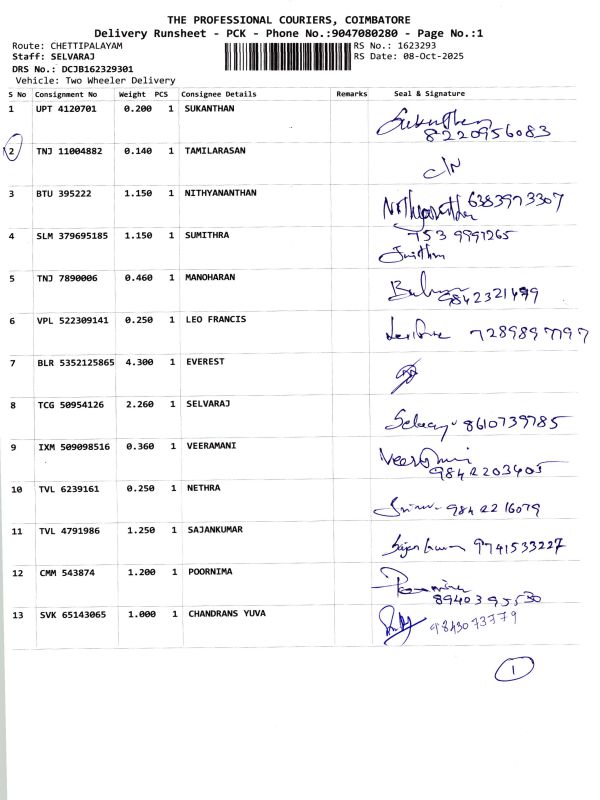 THE PROFESSIONAL COURIERS, COIMBATORE
Delivery Runsheet - PCK - Phone No.:9047080280 - Page No.:1
Route: CHETTIPALAYAM RS No.: 1623293
Staff: SELVARAJ RS Date: 08-Oct-2025
DRS No.: DCJB162329301
Vehicle: Two Wheeler Delivery
S No Consignment No Weight PCS Consignee Details Remarks Seal & Signature
1 UPT 4120701 0.200 1 SUKANTHAN Sukanthan
8220956083
2 TNJ 11004882 0.140 1 TAMILARASAN
C/N
3 BTU 395222 1.150 1 NITHYANANTHAN
Nithyananthan 6383973307
4 SLM 379695185 1.150 1 SUMITHRA 753 9991265
5 TNJ 7890006 0.460 1 MANOHARAN
9842321499
6 VPL 522309141 0.250 1 LEO FRANCIS
7289897797
7 BLR 5352125865 4.300 1 EVEREST
8 TCG 50954126 2.260 1 SELVARAJ
Selvaraj 8610739785
9 IXM 509098516 0.360 1 VEERAMANI Veeramani
9842203405
10 TVL 6239161 0.250 1 NETHRA
9842216079
11 TVL 4791986 1.250 1 SAJANKUMAR
Sajankumar 9741533227
12 CMM 543874 1.200 1 POORNIMA Poornima
8940395530
13 SVK 65143065 1.000 1 CHANDRANS YUVA 9843073779
1